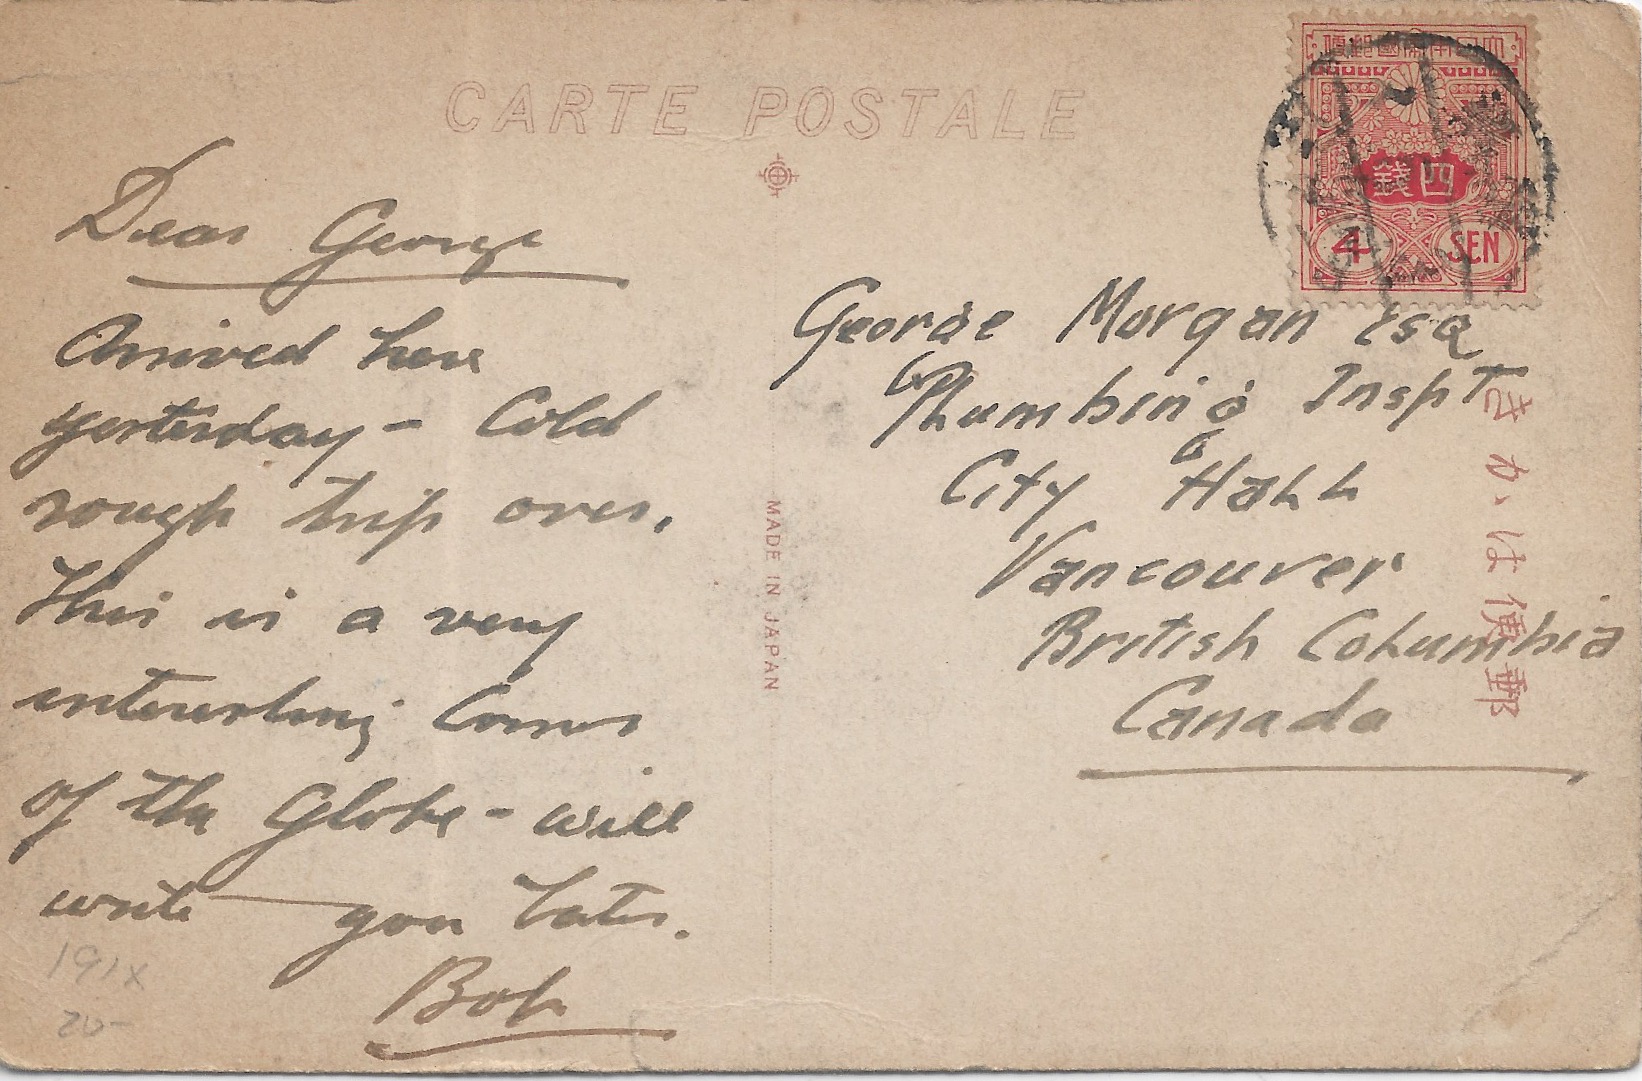 CARTE POSTALE
Dear George
Arrived here
yesterday - Cold
rough trip over.
This is a very
interesting corner
of the Globe - will
write you later.
Bob
191x
20-
MADE IN JAPAN
大日本帝國郵便
四錢
4 SEN
George Morgan Esq
Plumbing Inspt
City Hall
Vancouver
British Columbia
Canada
郵便はかき